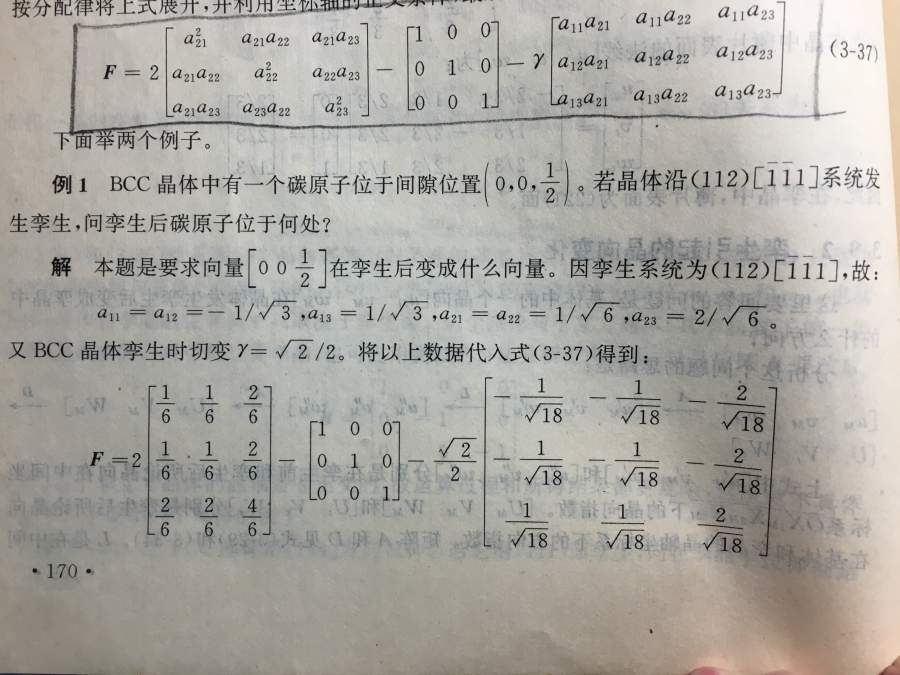 按分配律将上式展开,并利用坐标轴的正交条件
F = 2 [a²₂₁ a₂₁a₂₂ a₂₁a₂₃; a₂₁a₂₂ a²₂₂ a₂₂a₂₃; a₂₁a₂₃ a₂₃a₂₂ a²₂₃] − [1 0 0; 0 1 0; 0 0 1] − γ [a₁₁a₂₁ a₁₁a₂₂ a₁₁a₂₃; a₁₂a₂₁ a₁₂a₂₂ a₁₂a₂₃; a₁₃a₂₁ a₁₃a₂₂ a₁₃a₂₃] (3-37)
下面举两个例子。
例1 BCC 晶体中有一个碳原子位于间隙位置(0,0,1/2)。若晶体沿(112)[1̄1̄1]系统发
生孪生,问孪生后碳原子位于何处?
解 本题是要求向量[0 0 1/2]在孪生后变成什么向量。因孪生系统为(112)[1̄1̄1],故:
a₁₁ = a₁₂ = − 1/√3 ,a₁₃ = 1/√3 ,a₂₁ = a₂₂ = 1/√6 ,a₂₃ = 2/√6 。
又 BCC 晶体孪生时切变 γ= √2/2。将以上数据代入式(3-37)得到:
F=2 [1/6 1/6 2/6; 1/6 1/6 2/6; 2/6 2/6 4/6] − [1 0 0; 0 1 0; 0 0 1] − √2/2 [−1/√18 −1/√18 −2/√18; −1/√18 −1/√18 −2/√18; 1/√18 1/√18 2/√18]
·170·